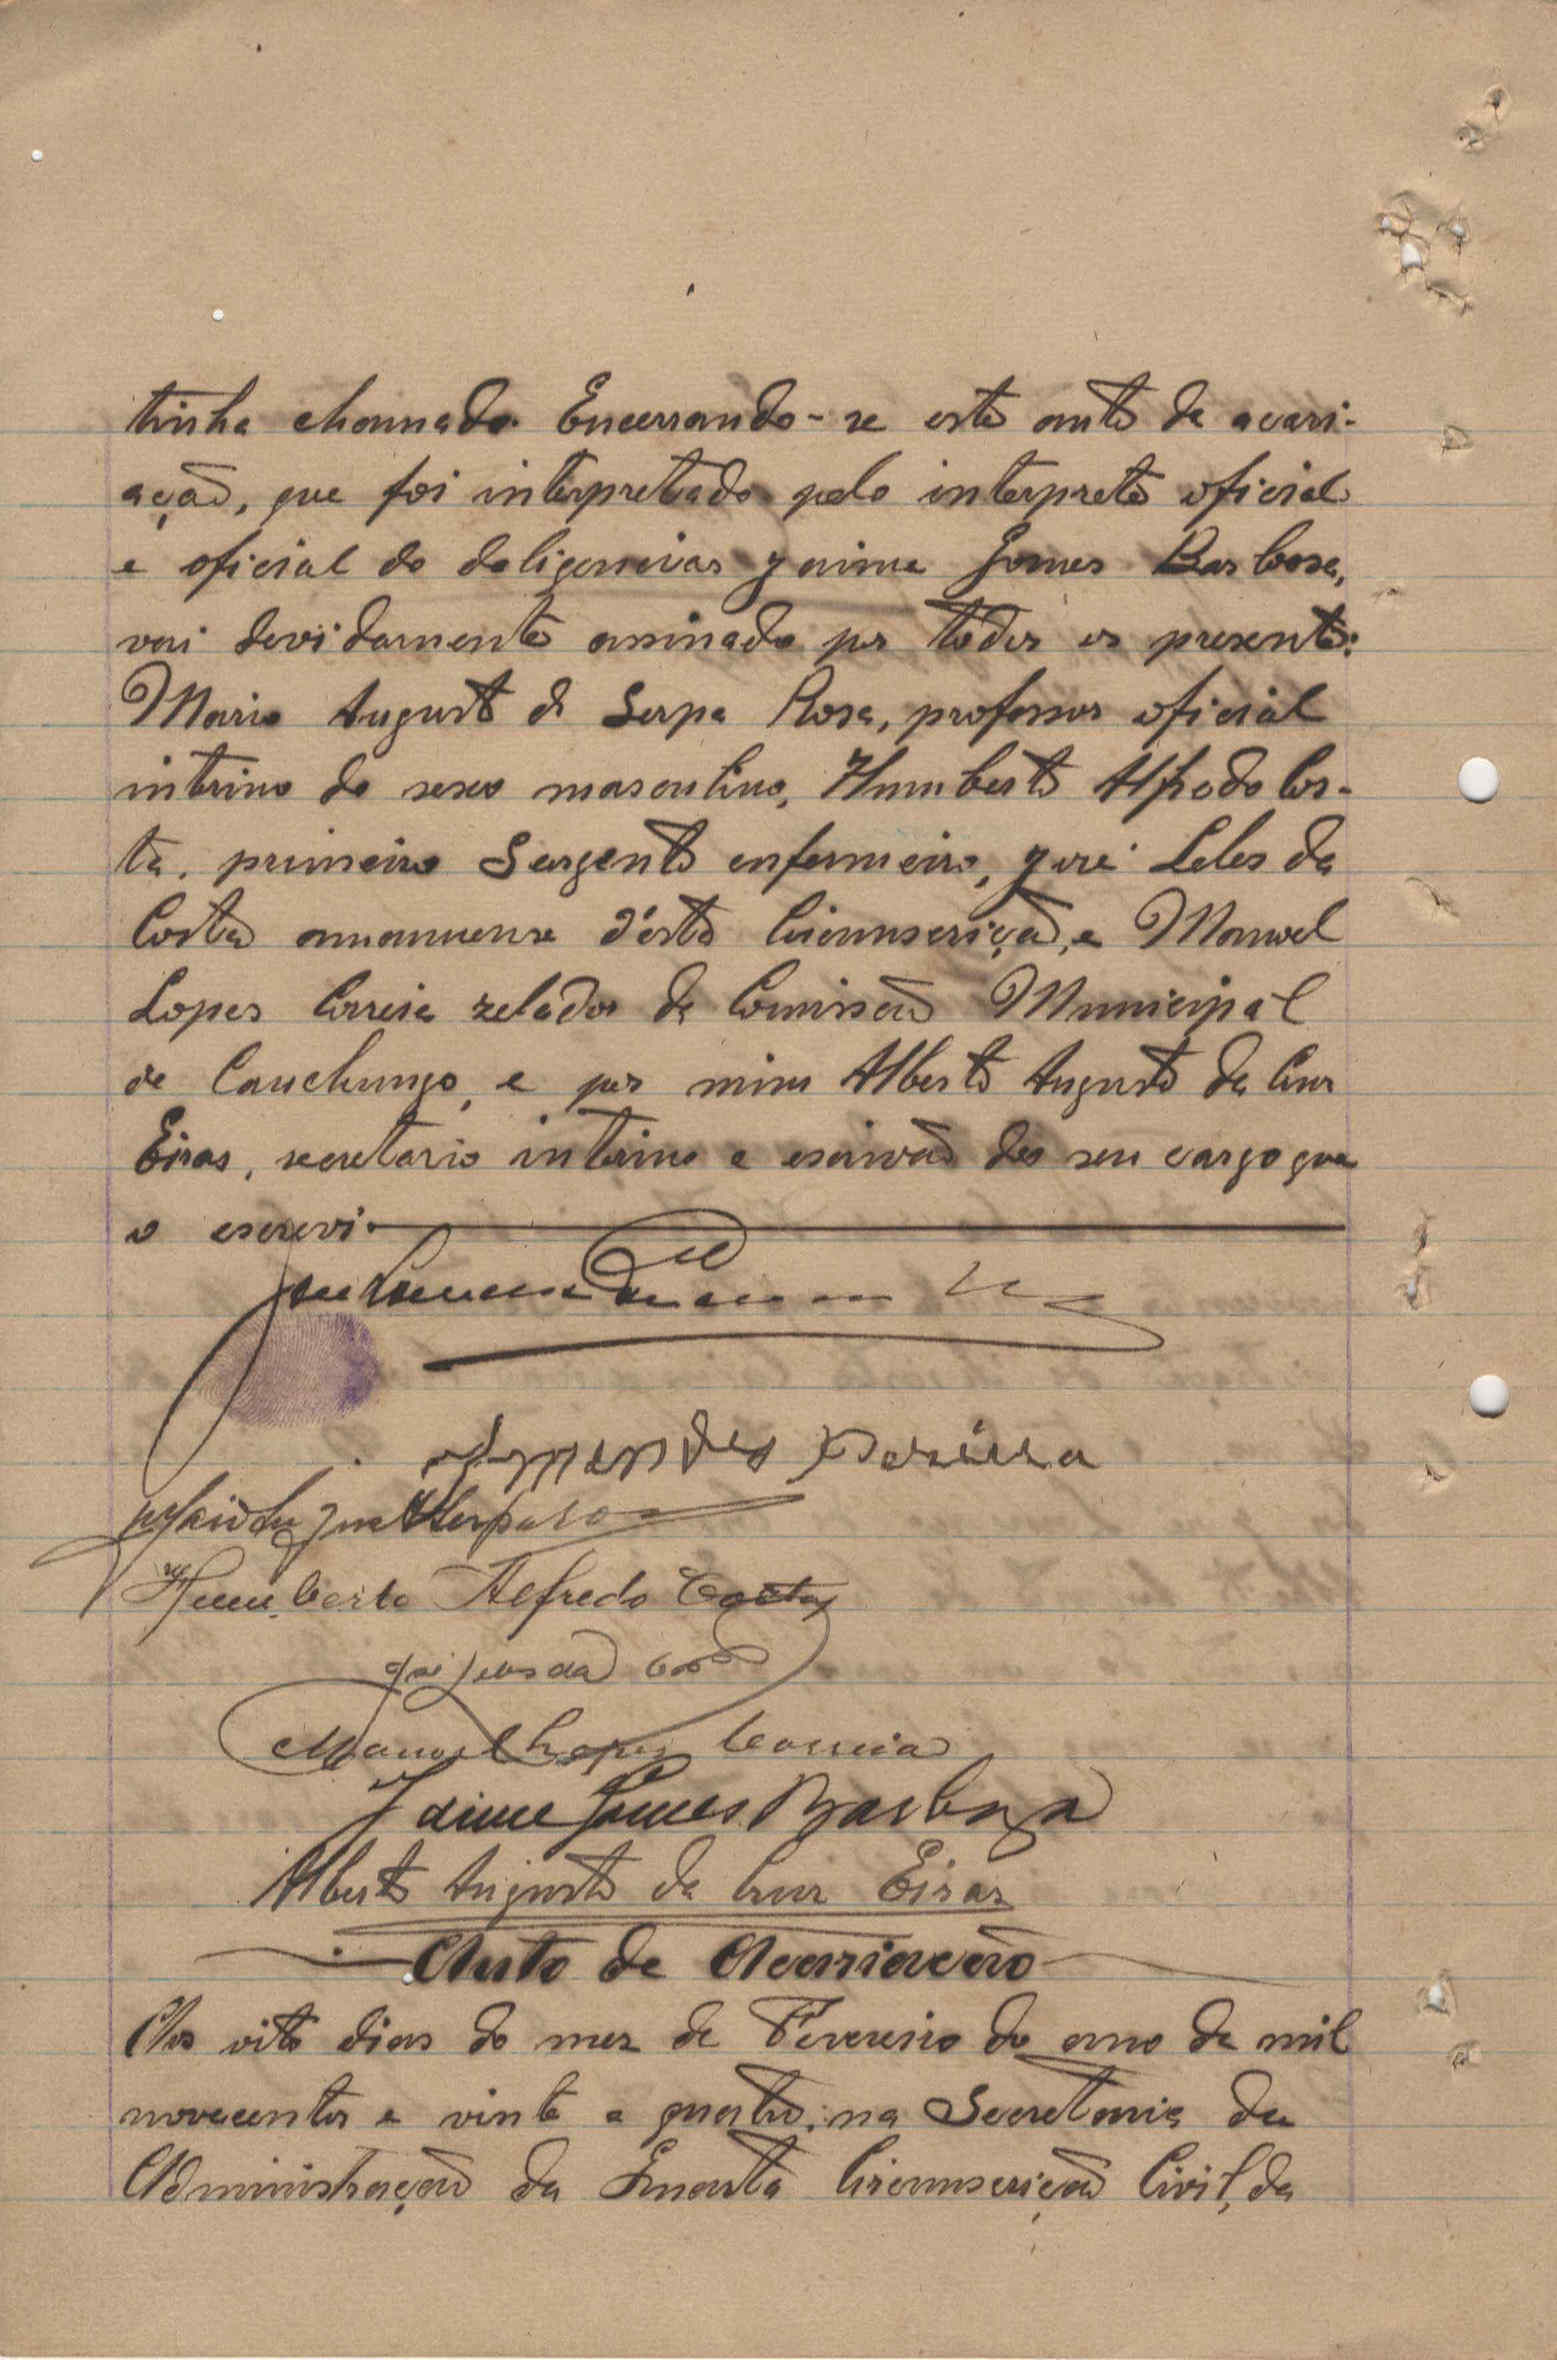 tinha chamado. Encerrando-se este auto de acari-
ação, que foi interpretado pelo interprete oficial
e oficial de deligencias Jaime Gomes Barbosa,
vai devidamente assinado por todos os presentes:
Mario Augusto de Serpa Rosa, professor oficial
interino do sexo masculino, Humberto Alfredo Cos-
ta, primeiro Sargento enfermeiro, José Leles da
Costa amanuense d'esta Circumscrição, e Manoel
Lopes Correia zelador da Comissão Municipal
de Canchungo, e por mim Alberto Augusto da Cruz
Eiras, secretario interino e escrivão do seu cargo que
o escrevi.
Mendes Pereira
Humberto Alfredo Costa
José da Costa
Manoel Lopes Correia
Jaime Gomes Barbosa
Alberto Augusto da Cruz Eiras
Auto de Acariacão
Aos oito dias do mez de Fevereiro do ano de mil
novecentos e vinte e quatro, na Secretaria da
Administração da Quarta Circumscrição Civil, da